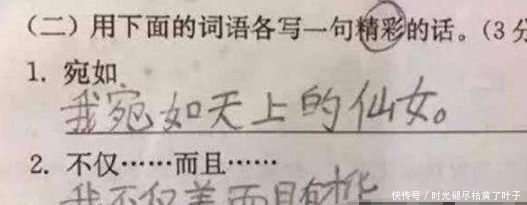 （二）用下面的词语各写一句精彩的话。（3分
1. 宛如
我宛如天上的仙女。
2. 不仅……而且……
我不仅美而且有才华
快传号／时光褪尽枯黄了叶子